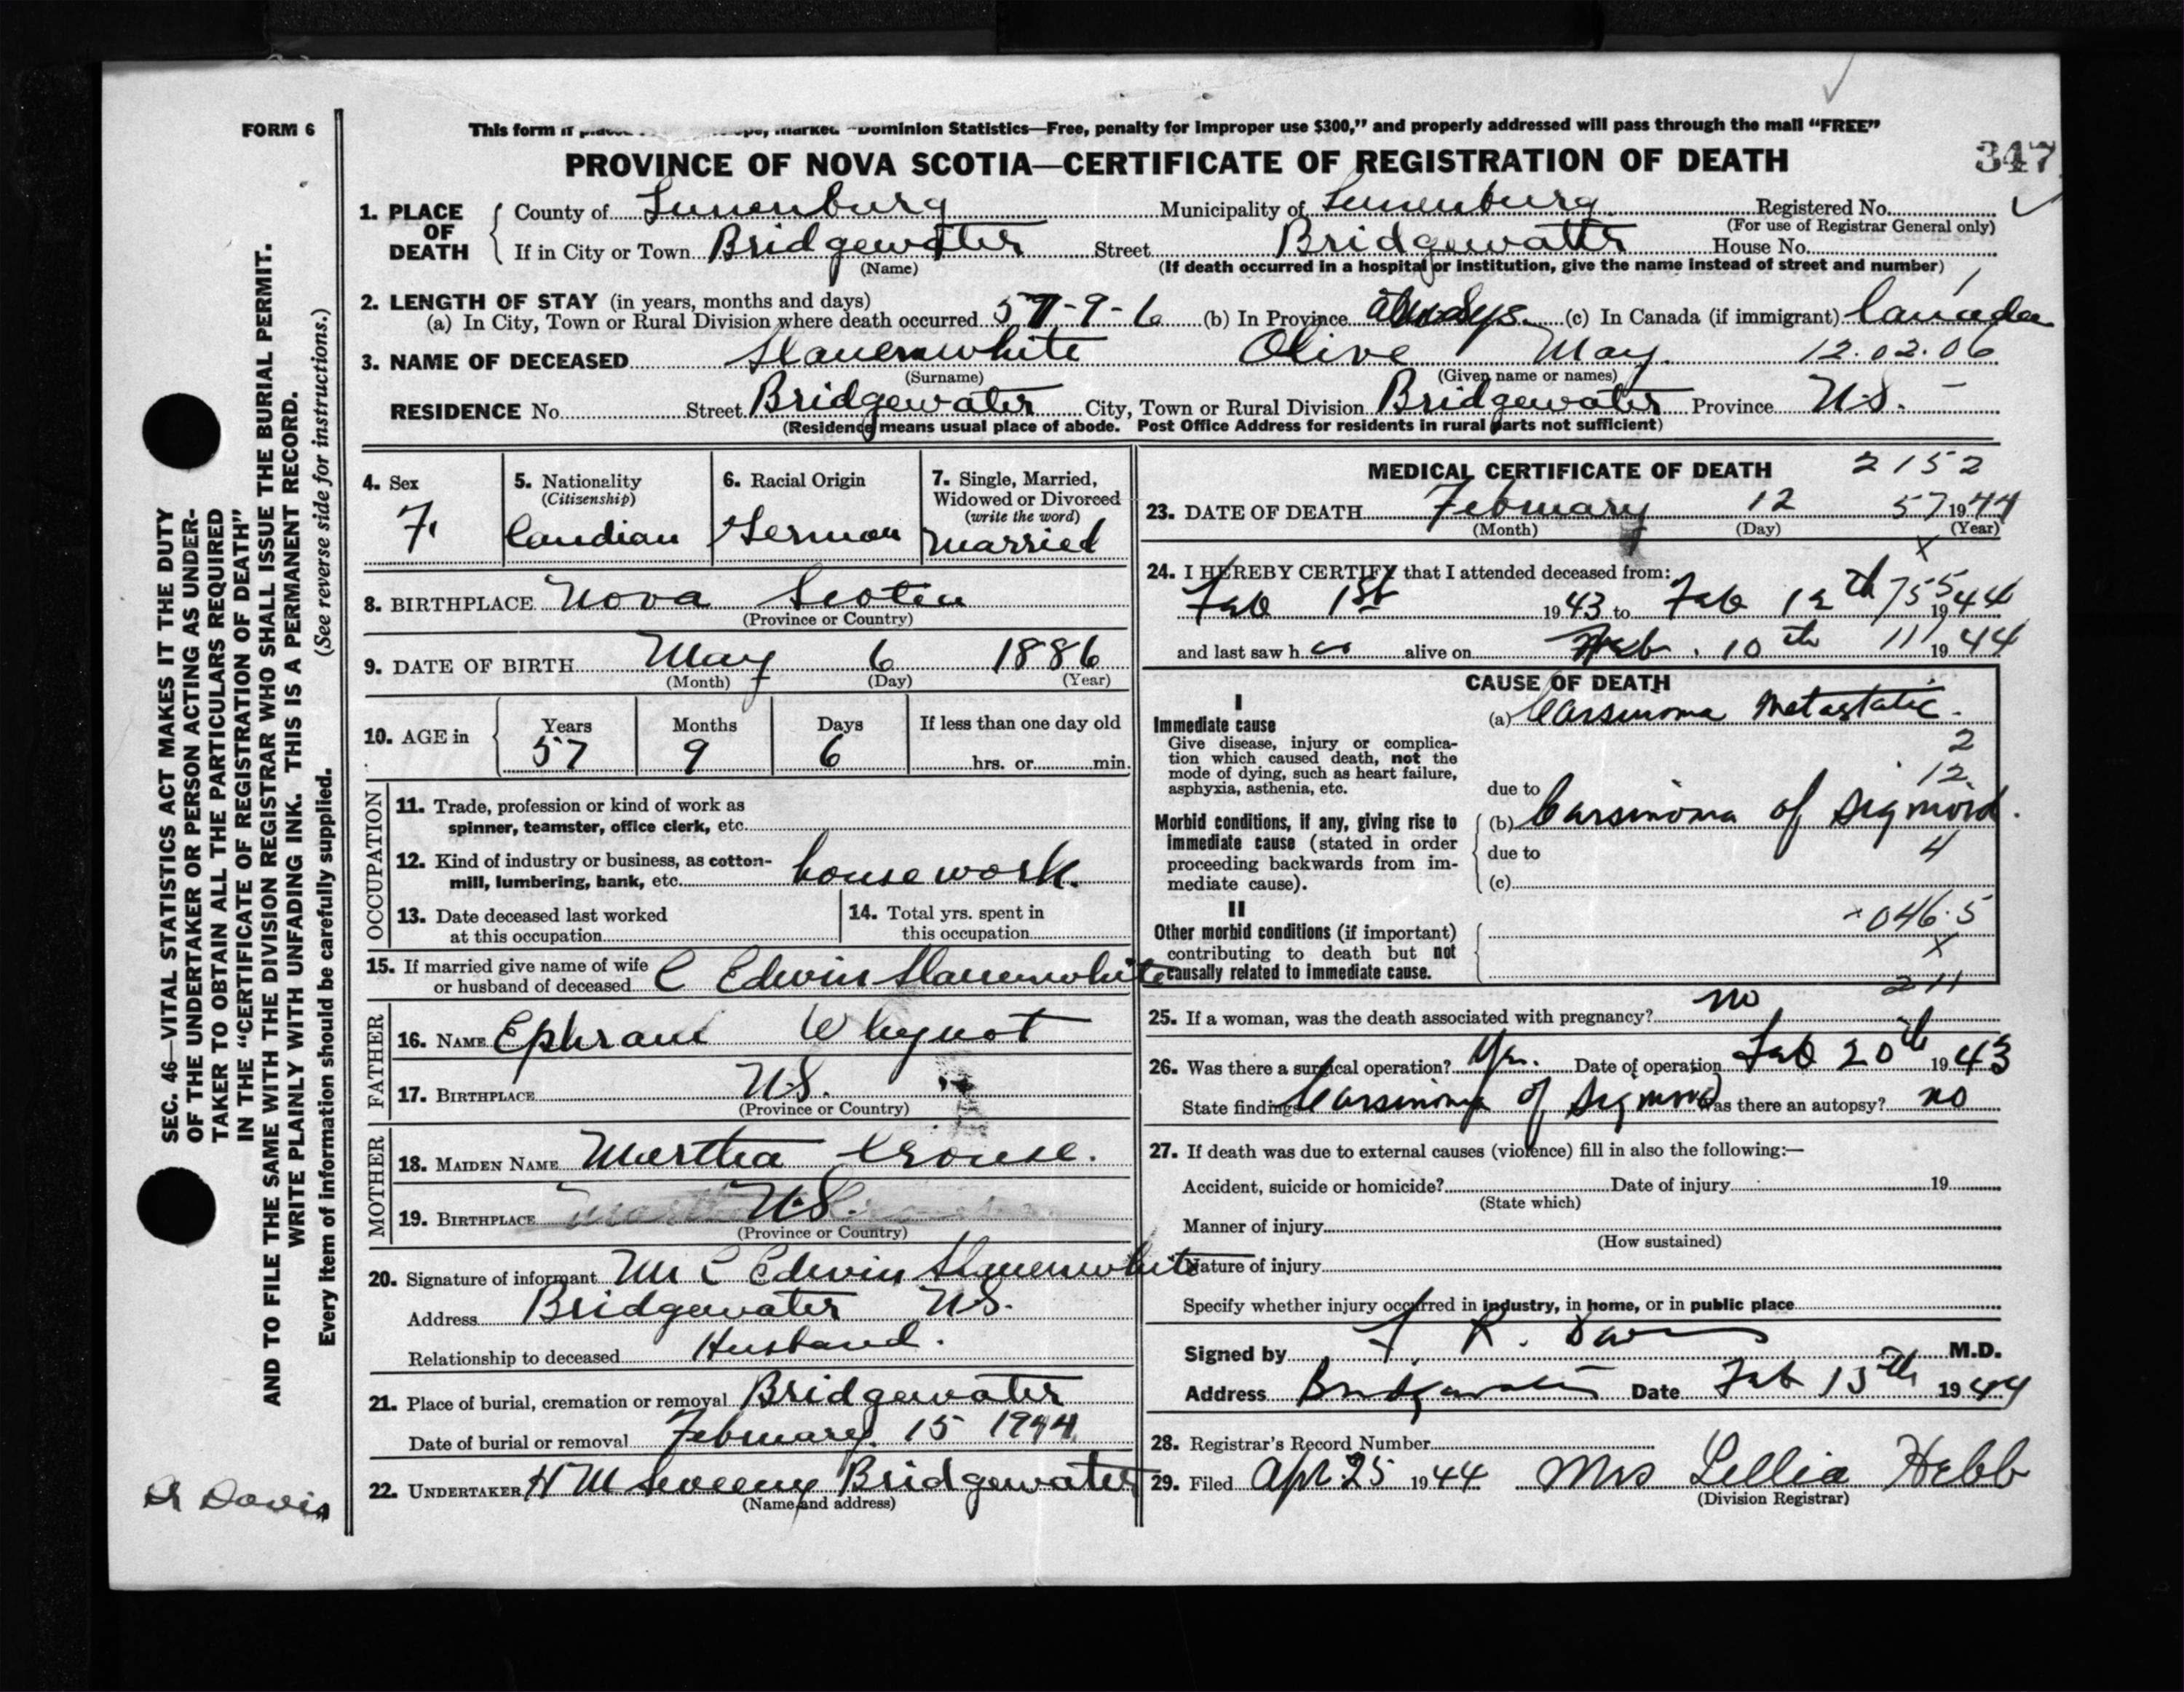 FORM 6
This form if placed marked "Dominion Statistics—Free, penalty for improper use $300," and properly addressed will pass through the mail "FREE"
PROVINCE OF NOVA SCOTIA—CERTIFICATE OF REGISTRATION OF DEATH
347
1. PLACE OF DEATH
County of Lunenburg Municipality of Lunenburg Registered No.
(For use of Registrar General only)
If in City or Town Bridgewater Street Bridgewater House No.
(Name) (If death occurred in a hospital or institution, give the name instead of street and number)
2. LENGTH OF STAY (in years, months and days)
(a) In City, Town or Rural Division where death occurred 57-9-6 (b) In Province always. (c) In Canada (if immigrant) Canada
3. NAME OF DECEASED Slauenwhite Olive May. 12.02.06
(Surname) (Given name or names)
RESIDENCE No. Street Bridgewater City, Town or Rural Division Bridgewater Province N.S.
(Residence means usual place of abode. Post Office Address for residents in rural parts not sufficient)
4. Sex
F.
5. Nationality
(Citizenship)
Candian
6. Racial Origin
German
7. Single, Married,
Widowed or Divorced
(write the word)
Married
8. BIRTHPLACE Nova Scotia
(Province or Country)
9. DATE OF BIRTH May 6 1886
(Month) (Day) (Year)
10. AGE in Years Months Days If less than one day old
57 9 6 hrs. or min.
OCCUPATION
11. Trade, profession or kind of work as
spinner, teamster, office clerk, etc.
12. Kind of industry or business, as cotton-
mill, lumbering, bank, etc. housework.
13. Date deceased last worked
at this occupation
14. Total yrs. spent in
this occupation
15. If married give name of wife
or husband of deceased C Edwin Slauenwhite
FATHER
16. NAME Ephram Whynot
17. BIRTHPLACE N.S.
(Province or Country)
MOTHER
18. MAIDEN NAME Martha Crouse.
19. BIRTHPLACE N.S.
(Province or Country)
20. Signature of informant Mr C Edwin Slauenwhite
Address Bridgewater N.S.
Relationship to deceased Husband.
21. Place of burial, cremation or removal Bridgewater
Date of burial or removal February 15 1944
22. UNDERTAKER H M Sweeny Bridgewater
(Name and address)
MEDICAL CERTIFICATE OF DEATH 2152
23. DATE OF DEATH February 12 57 1944
(Month) (Day) (Year)
x
24. I HEREBY CERTIFY that I attended deceased from:
Feb 1st 1943 to Feb 12th 755 1944
and last saw h er alive on Feb. 10th 11 1944
CAUSE OF DEATH
I
Immediate cause
Give disease, injury or complica-
tion which caused death, not the
mode of dying, such as heart failure,
asphyxia, asthenia, etc.
(a) Carsinoma Metastatic.
2
12
due to
Morbid conditions, if any, giving rise to
immediate cause (stated in order
proceeding backwards from im-
mediate cause).
(b) Carsinoma of Sigmoid.
due to 4
(c)
II
Other morbid conditions (if important)
contributing to death but not
causally related to immediate cause.
046.5
x
211
25. If a woman, was the death associated with pregnancy? no
26. Was there a surgical operation? Yes. Date of operation Feb 20th 1943
State findings Carsinoma of Sigmoid Was there an autopsy? no
27. If death was due to external causes (violence) fill in also the following:—
Accident, suicide or homicide? Date of injury 19
(State which)
Manner of injury
(How sustained)
Nature of injury
Specify whether injury occurred in industry, in home, or in public place
Signed by F. R. Davis M.D.
Address Bridgewater Date Feb 13th 1944
28. Registrar's Record Number
29. Filed Apr. 25 1944 Mrs Lellia Hebb
(Division Registrar)
SEC. 46—VITAL STATISTICS ACT MAKES IT THE DUTY
OF THE UNDERTAKER OR PERSON ACTING AS UNDER-
TAKER TO OBTAIN ALL THE PARTICULARS REQUIRED
IN THE "CERTIFICATE OF REGISTRATION OF DEATH"
AND TO FILE THE SAME WITH THE DIVISION REGISTRAR WHO SHALL ISSUE THE BURIAL PERMIT.
WRITE PLAINLY WITH UNFADING INK. THIS IS A PERMANENT RECORD.
Every item of information should be carefully supplied. (See reverse side for instructions.)
Dr Davis